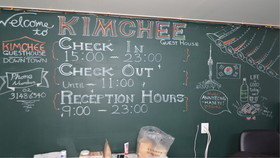 Welcome to
KIMCHEE
GUEST HOUSE
KIMCHEE
GUESTHOUSE
DOWNTOWN
CHECK IN
15:00 - 23:00
CHECK OUT
UNTIL - 11:00
RECEPTION HOURS
9:00 - 23:00
Phone
Number